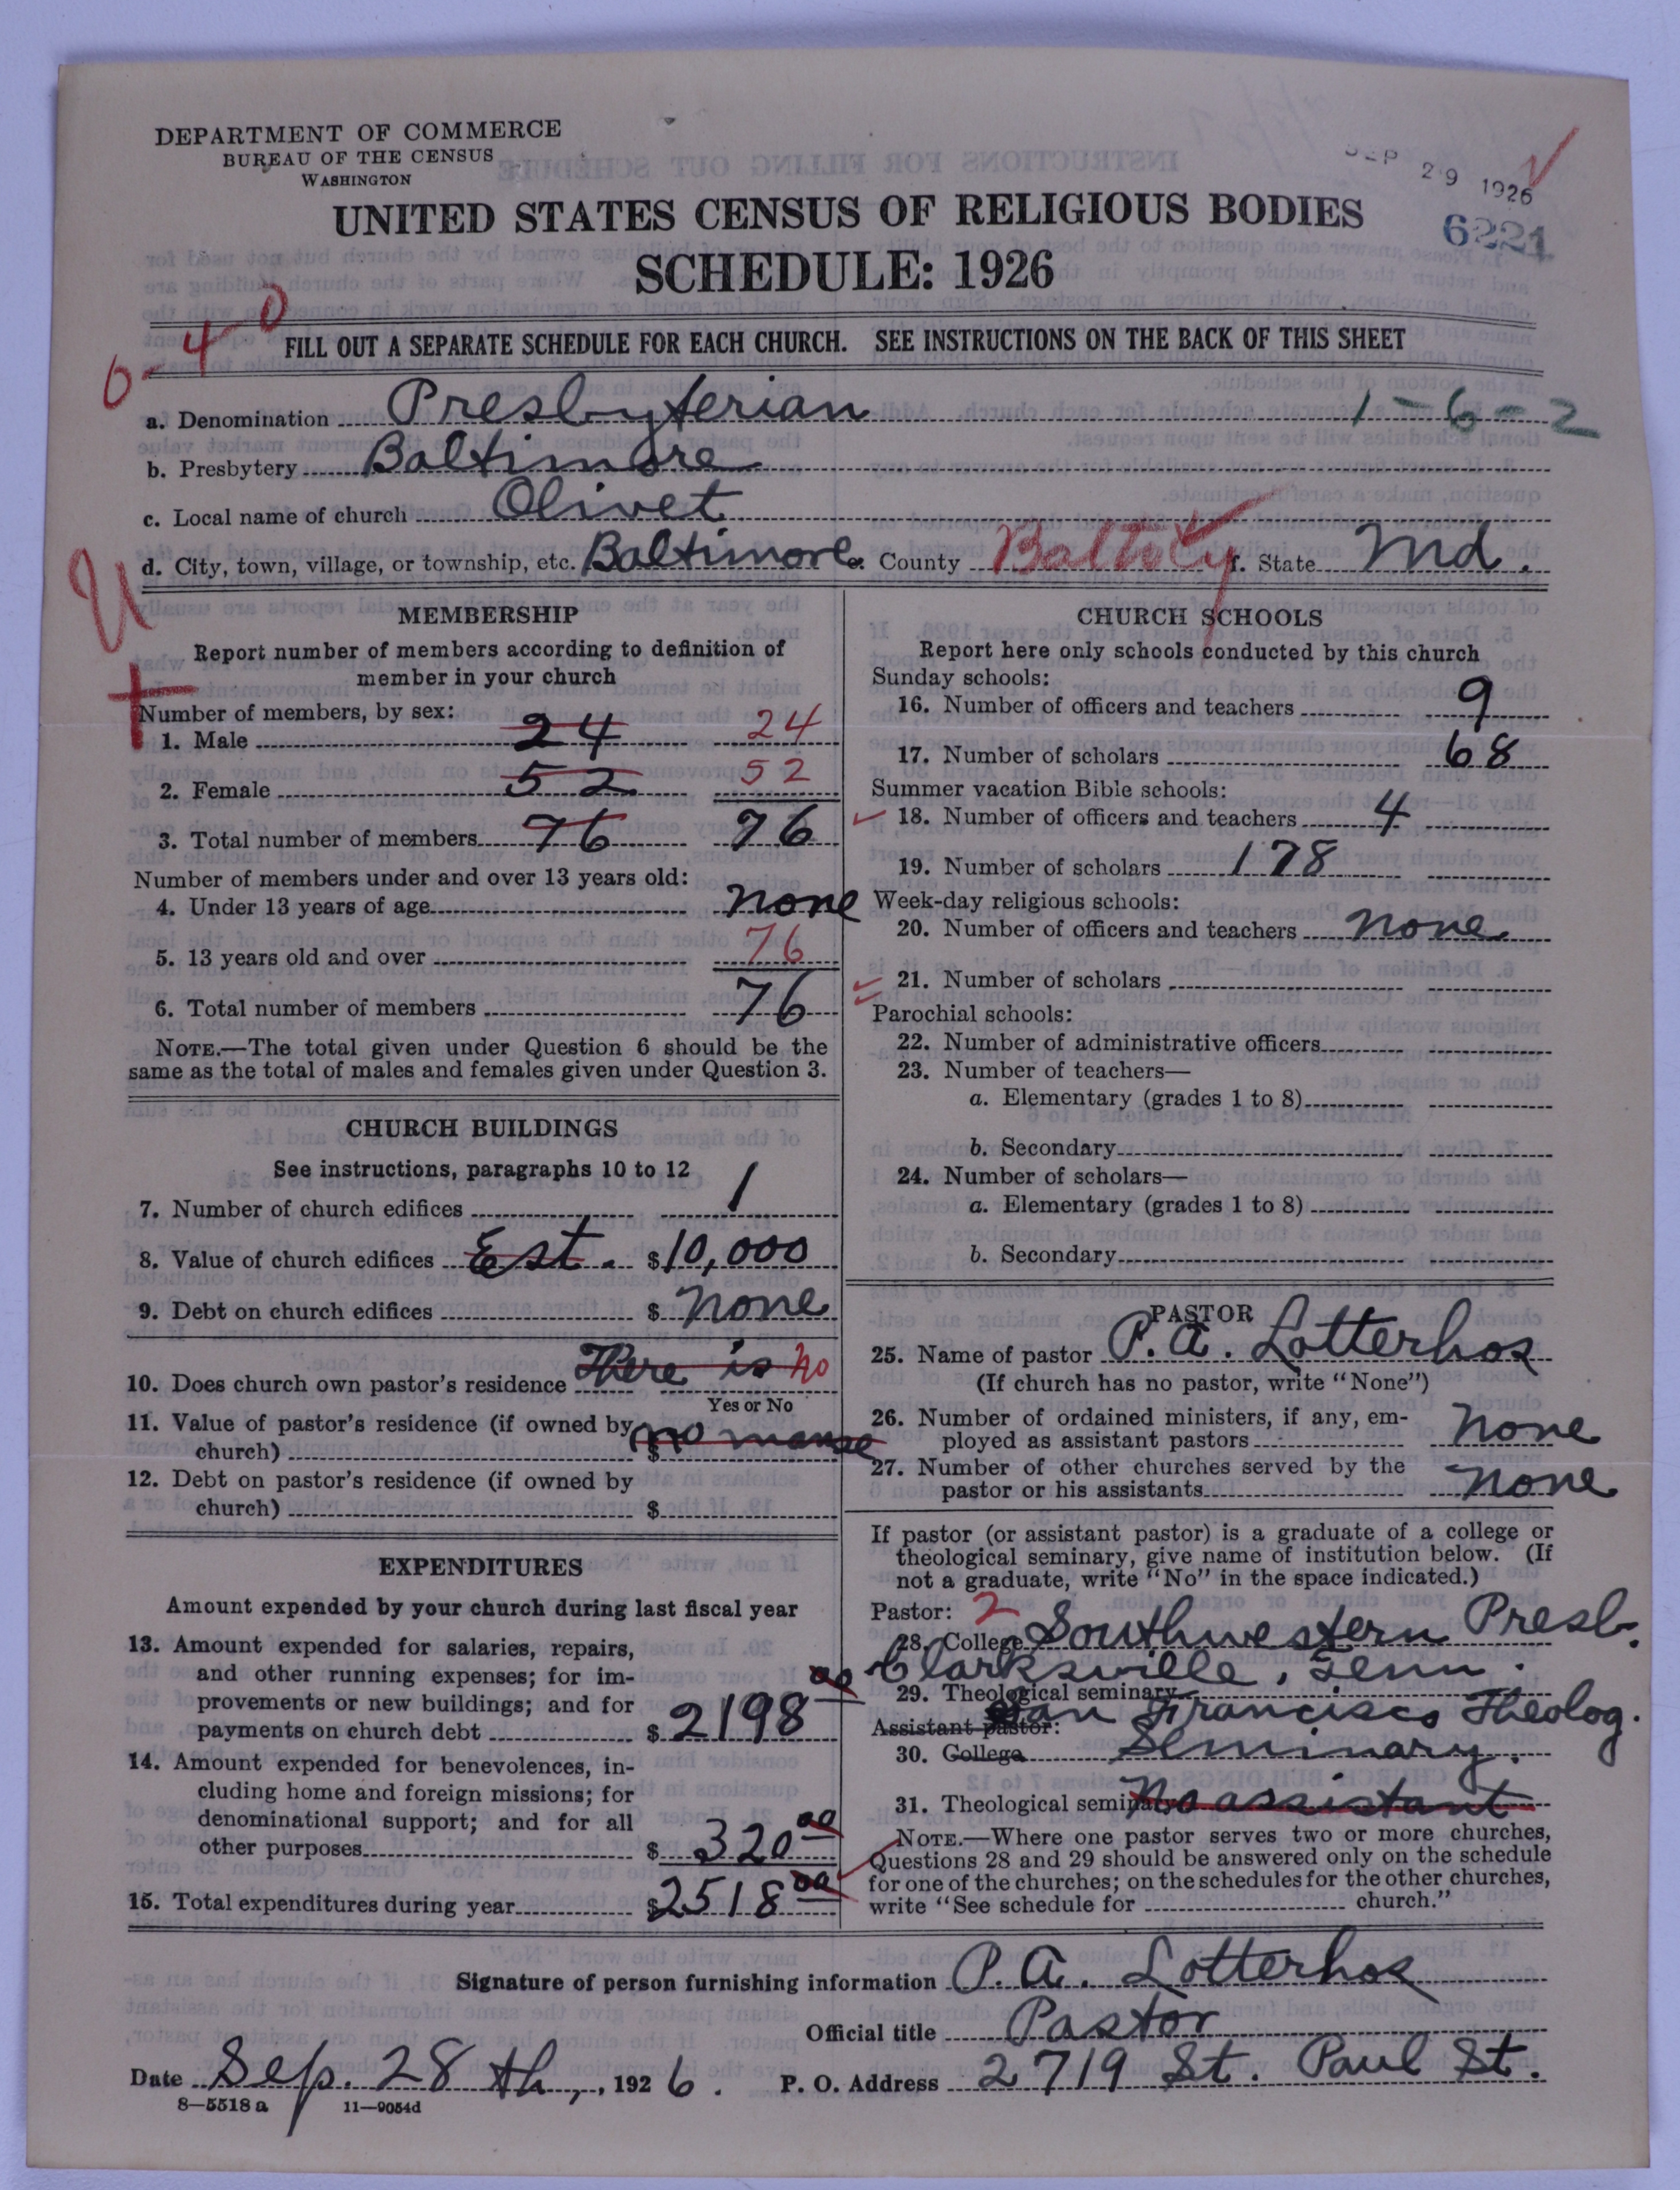 DEPARTMENT OF COMMERCE
BUREAU OF THE CENSUS
WASHINGTON
SEP 29 1926
6221
UNITED STATES CENSUS OF RELIGIOUS BODIES
SCHEDULE: 1926
0-4-0
FILL OUT A SEPARATE SCHEDULE FOR EACH CHURCH. SEE INSTRUCTIONS ON THE BACK OF THIS SHEET
a. Denomination Presbyterian 1-6-2
b. Presbytery Baltimore
c. Local name of church Olivet
d. City, town, village, or township, etc. Baltimore e. County Balto Cy f. State Md.
U
MEMBERSHIP
Report number of members according to definition of
member in your church
Number of members, by sex:
1. Male 24 24
2. Female 52 52
3. Total number of members 76 76
Number of members under and over 13 years old:
4. Under 13 years of age None
5. 13 years old and over 76
6. Total number of members 76
NOTE.—The total given under Question 6 should be the
same as the total of males and females given under Question 3.
CHURCH BUILDINGS
See instructions, paragraphs 10 to 12
7. Number of church edifices 1
8. Value of church edifices Est. $10,000
9. Debt on church edifices $ None
10. Does church own pastor's residence There is no
Yes or No
11. Value of pastor's residence (if owned by
church) $ no manse
12. Debt on pastor's residence (if owned by
church) $
EXPENDITURES
Amount expended by your church during last fiscal year
13. Amount expended for salaries, repairs,
and other running expenses; for im-
provements or new buildings; and for
payments on church debt $ 2198 00
14. Amount expended for benevolences, in-
cluding home and foreign missions; for
denominational support; and for all
other purposes $ 320 00
15. Total expenditures during year $2518 00
CHURCH SCHOOLS
Report here only schools conducted by this church
Sunday schools:
16. Number of officers and teachers 9
17. Number of scholars 68
Summer vacation Bible schools:
18. Number of officers and teachers 4
19. Number of scholars 178
Week-day religious schools:
20. Number of officers and teachers None
21. Number of scholars
Parochial schools:
22. Number of administrative officers
23. Number of teachers—
a. Elementary (grades 1 to 8)
b. Secondary
24. Number of scholars—
a. Elementary (grades 1 to 8)
b. Secondary
PASTOR
25. Name of pastor P. A. Lotterhos
(If church has no pastor, write "None")
26. Number of ordained ministers, if any, em-
ployed as assistant pastors None
27. Number of other churches served by the
pastor or his assistants None
If pastor (or assistant pastor) is a graduate of a college or
theological seminary, give name of institution below. (If
not a graduate, write "No" in the space indicated.)
Pastor: 2
28. College Southwestern Presb.
Clarksville, Tenn.
29. Theological seminary
San Francisco Theolog.
Assistant pastor:
30. College Seminary.
31. Theological seminary No assistant
NOTE.—Where one pastor serves two or more churches,
Questions 28 and 29 should be answered only on the schedule
for one of the churches; on the schedules for the other churches,
write "See schedule for church."
Signature of person furnishing information P. A. Lotterhos
Official title Pastor
Date Sep. 28 th, , 1926. P. O. Address 2719 St. Paul St.
8—5518 a 11—9054d